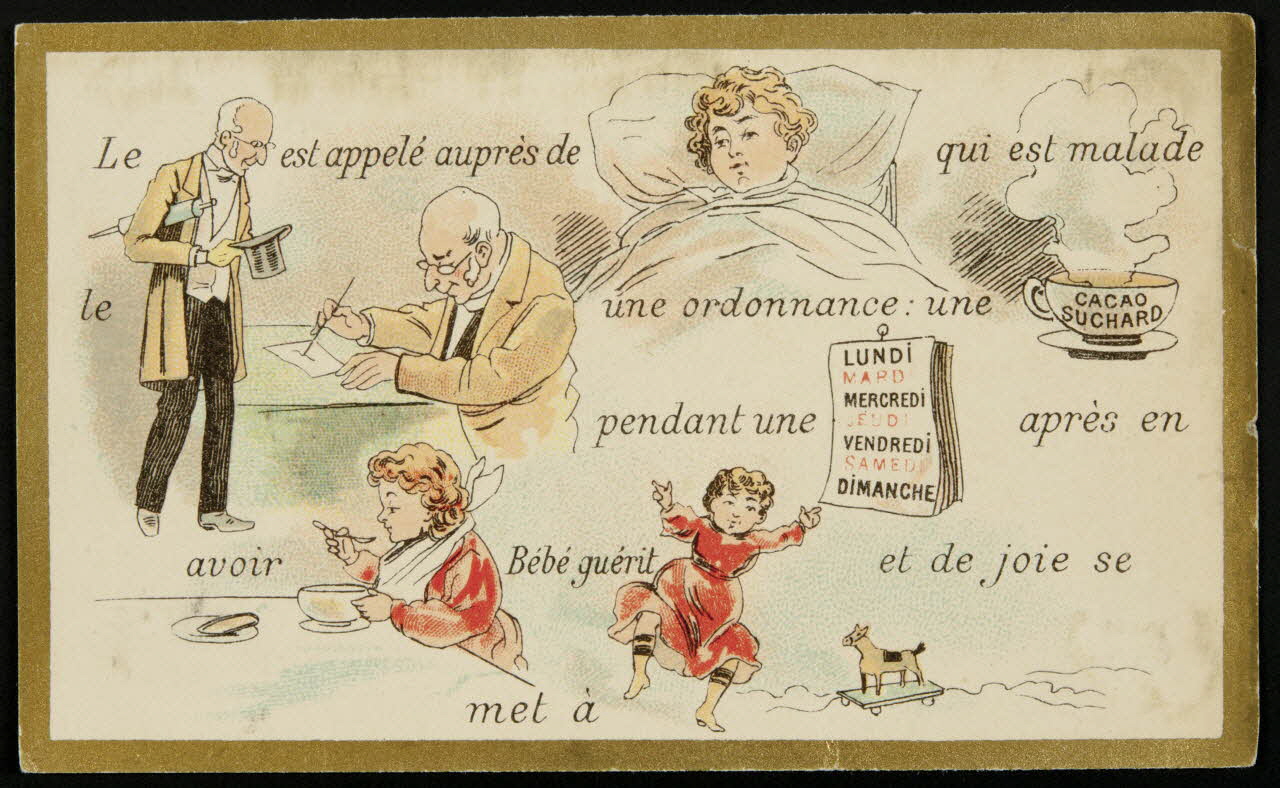 Le est appelé auprès de qui est malade
le une ordonnance: une
CACAO
SUCHARD
pendant une
LUNDI
MARDI
MERCREDI
JEUDI
VENDREDI
SAMEDI
DIMANCHE
après en
avoir Bébé guérit et de joie se
met à